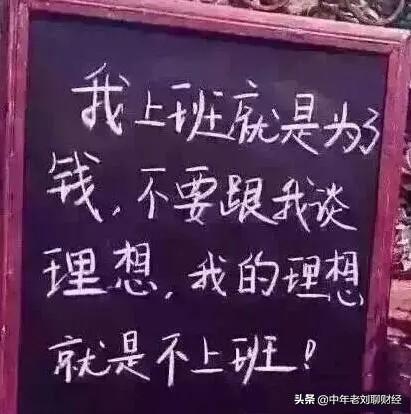 我上班就是为了
钱，不要跟我谈
理想，我的理想
就是不上班！
头条 @中年老刘聊财经